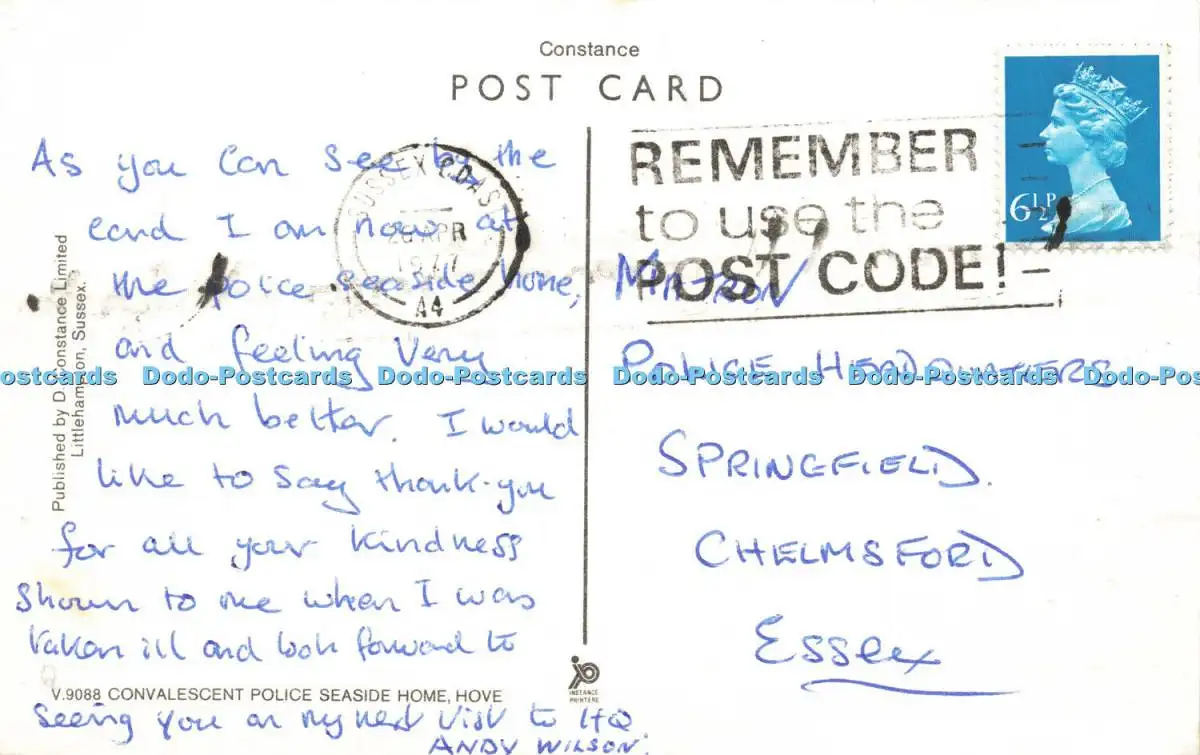 Constance
POST CARD
As you can see by the
card I am now at
the police seaside home,
and feeling very
much better. I would
like to say thank-you
for all your kindness
shown to me when I was
taken ill and look forward to
seeing you on my next visit to HQ
ANDY WILSON.
SUSSEX COAST
APR
1977
A4
REMEMBER
to use the
POST CODE!
6½P
MATRON
POLICE HEADQUARTERS
SPRINGFIELD.
CHELMSFORD
ESSex
Published by D. Constance Limited
Littlehampton, Sussex.
V.9088 CONVALESCENT POLICE SEASIDE HOME, HOVE
INSTANCE
PRINTERS
Dodo-Postcards Dodo-Postcards Dodo-Postcards Dodo-Postcards